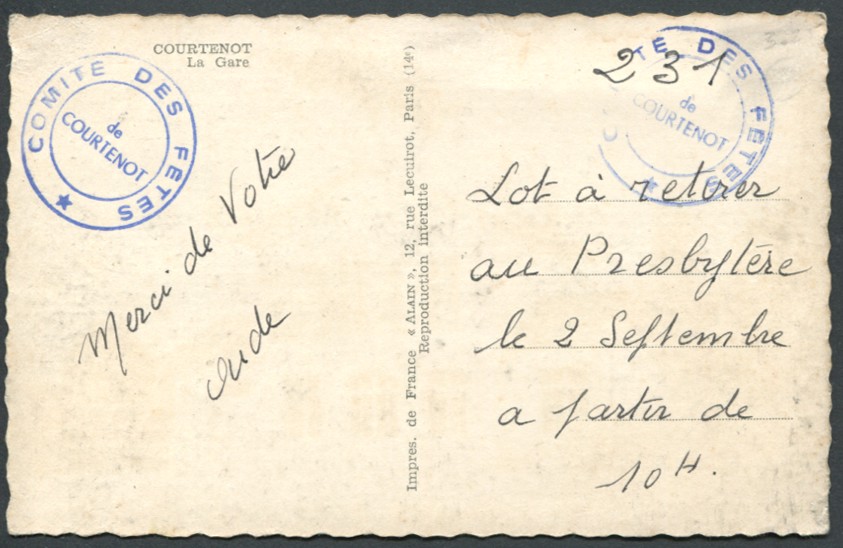 COURTENOT
La Gare
COMITE DES FETES
de
COURTENOT
Merci de Votre
aide
Impres. de France « ALAIN », 12, rue Lecuirot, Paris (14e)
Reproduction interdite
TE DES FETES
de
COURTENOT
231
Lot à retirer
au Presbytère
le 2 Septembre
a partir de
10H.